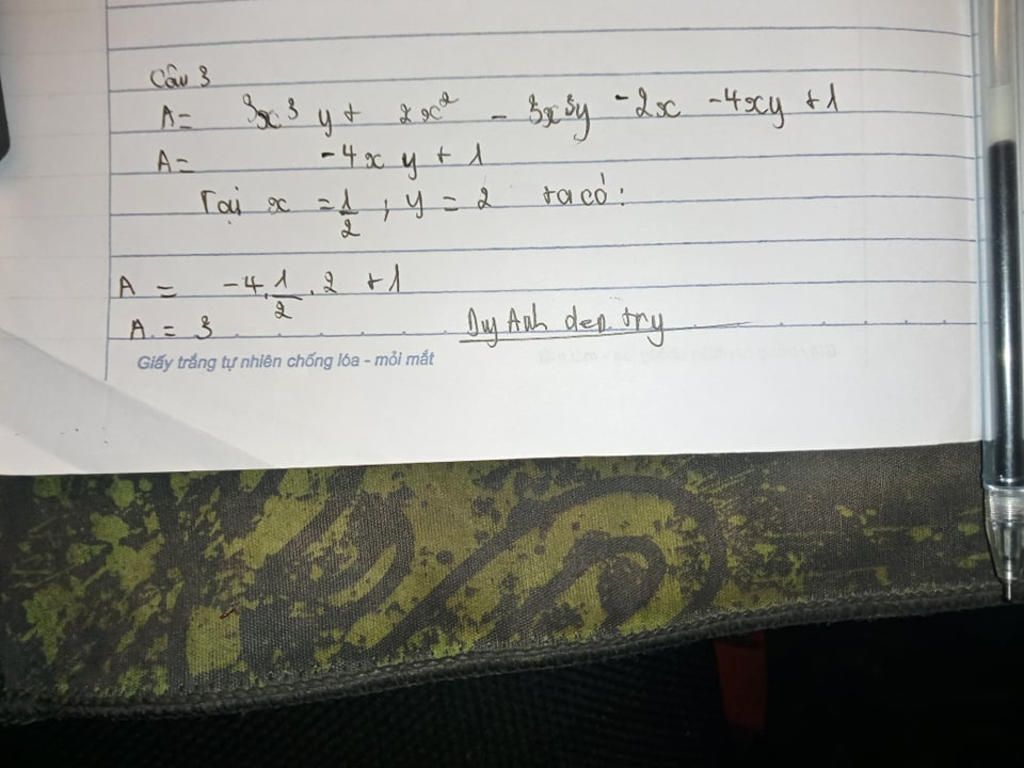 Câu 3
A= 3x³ y + 2x² - 3x³y -2x -4xy +1
A= -4x y + 1
Tại x = 1/2 ; y = 2 ta có:
A = -4.1/2.2 +1
A = 3
Duy Anh dep try
Giấy trắng tự nhiên chống lóa - mỏi mắt